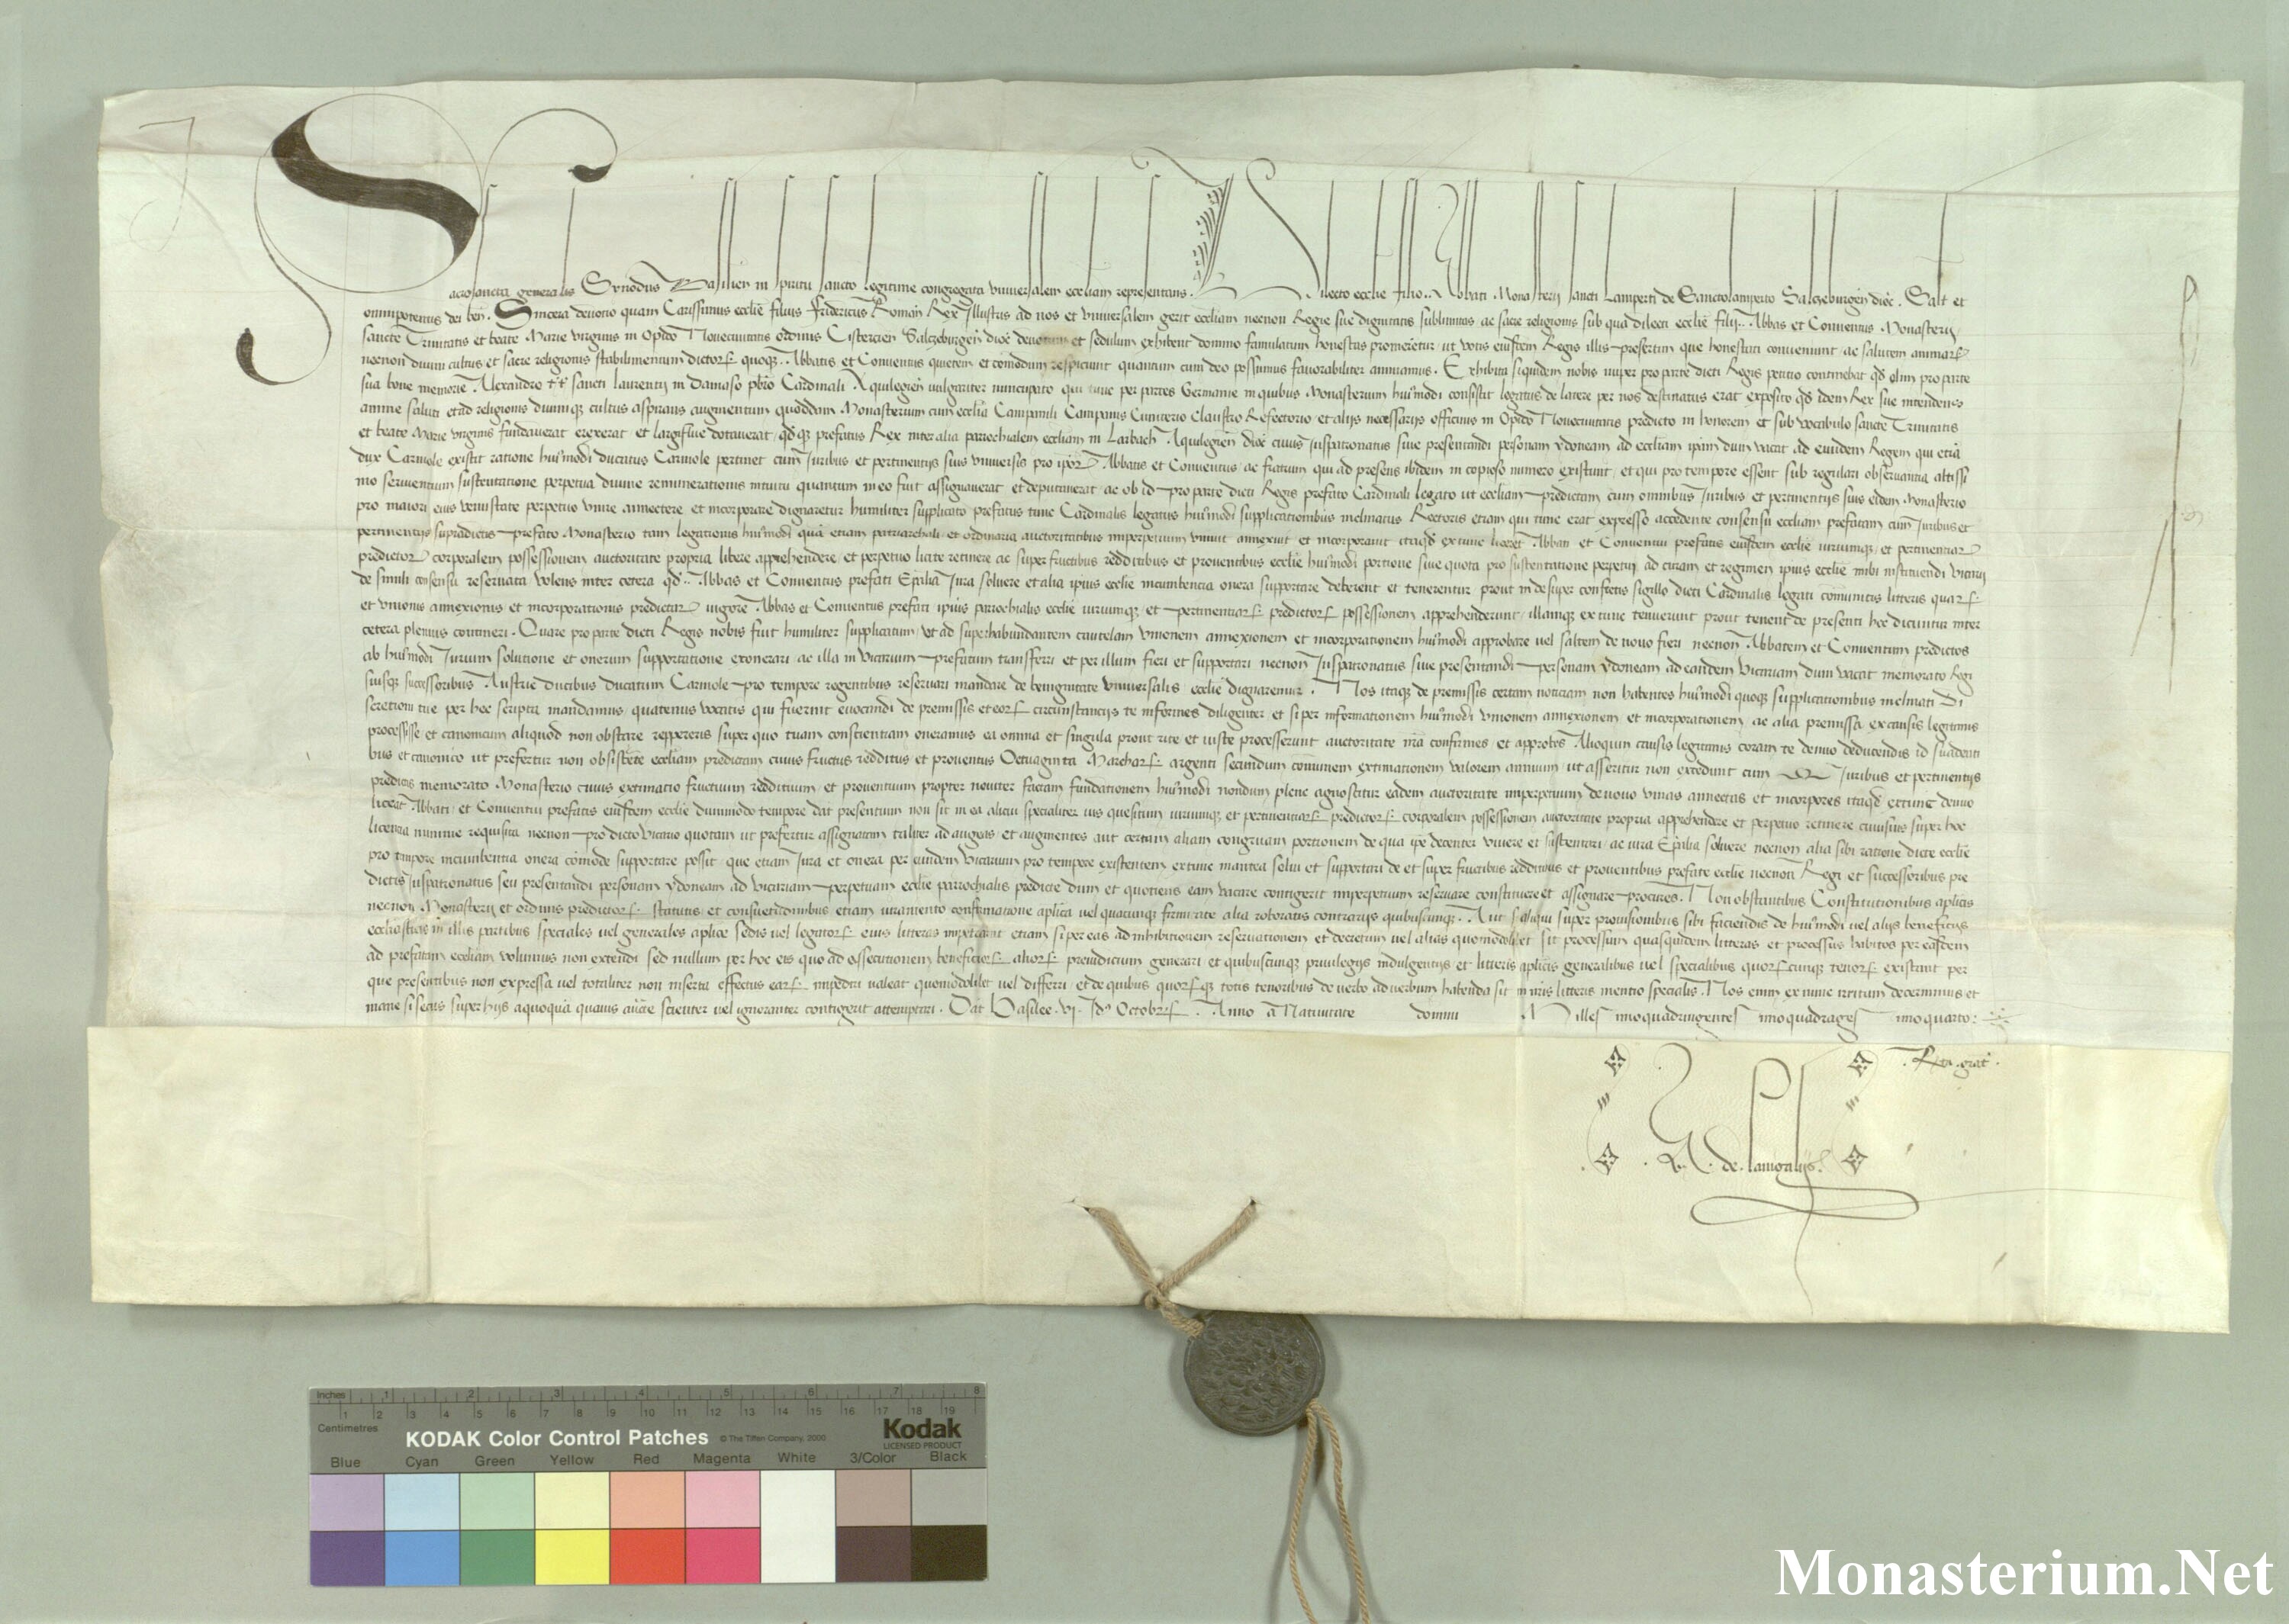 Sacrosancta generalis Sinodus Basilien in spiritu sancto legitime congregata universalem ecclesiam representans. Dilecto ecclesie filio .. Abbati Monasterii sancti Lamperti de Sanctolamperto Salczeburgen dioc. Salt et
omnipotentis dei ben. Sincera devotio quam Carissimus ecclesie filius Fridericus Roman Rex Illustris ad nos et universalem gerit ecclesiam necnon Regie sue dignitatis sublimitas ac sacre religionis sub qua dilecti ecclesie filii .. Abbas et Conventus Monasterii
sancte Trinitatis et beate Marie virginis in Opido Novecivitatis ordinis Cistercien Salczeburgen dioc devotum et sedulum exhibent domino famulatum honestas promeretur ut votis eiusdem Regis illis presertim que honestati conveniunt ac salutem animar
necnon divini cultus et sacre religionis stabilimentum dictor quoque .. Abbatis et Conventus quietem et comodum respiciunt quantum cum deo possumus favorabiliter annuamus. Exhibita siquidem nobis nuper pro parte dicti Regis petitio continebat qd olim pro parte
sua bone memorie Alexandro tt sancti Laurentii in Damaso pbro Cardinali Aquilegien vulgariter nuncupato qui tunc per partes Germanie in quibus Monasterium huiusmodi consistit legatus de latere per nos destinatus erat exposito qd idem Rex sue intendens
anime saluti et ad religionis divinique cultus aspirans augmentum quoddam Monasterium cum ecclesia Campanili Campanis Cimiterio Claustro Refectorio et aliis necessariis officinis in Opido Novecivitatis predicto in honorem et sub vocabulo sancte Trinitatis
et beate Marie virginis fundaverat erexerat et largiflue dotaverat qdque prefatus Rex inter alia parrochialem ecclesiam in Laibach Aquilegien dioc cuius Juspatronatus sive presentandi personam ydoneam ad ecclesiam ipsam dum vacat ad eundem Regem qui etia
dux Carniole existit ratione huiusmodi ducatus Carniole pertinet cum Juribus et pertinentiis suis universis pro ipor Abbatis et Conventus ac fratrum qui ad presens ibidem in copioso numero existunt et qui pro tempore essent sub regulari observantia altissi
mo servientium sustentatione perpetua divine remunerationis intuitu quantum in eo fuit assignaverat et deputaverat ac ob id pro parte dicti Regis prefato Cardinali legato ut ecclesiam predictam cum omnibus Juribus et pertinentiis suis eidem Monasterio
pro maiori eius venustate perpetuo unire annectere et incorporare dignaretur humiliter supplicato prefatus tunc Cardinalis legatus huiusmodi supplicationibus inclinatus Rectoris etiam qui tunc erat expresso accedente consensu ecclesiam prefatam cum Juribus et
pertinentiis supradictis prefato Monasterio tam legationis huiusmodi qua etiam patriarchali et ordinaria auctoritatibus imperpetuum univit annexuit et incorporavit itaqd extunc liceret Abbati et Conventui prefatis eiusdem ecclesie iuriumque et pertinentiar
predictor corporalem possessionem auctoritate propria libere apprehendere et perpetuo licite retinere ac super fructibus redditibus et proventibus ecclesie huiusmodi portione sive quota pro sustentatione perpetui ad curam et regimen ipius ecclesie inibi instituendi vicarii
de simili consensu reservata volens inter cetera qd .. Abbas et Conventus prefati Epalia Jura solvere et alia ipius ecclesie incumbencia onera supportare deberent et tenerentur prout in desuper confectis sigillo dicti Cardinalis legati comunitis litteris quar
et unionis annexionis et incorporationis predictar vigore Abbas et Conventus prefati ipius parrochialis ecclesie iuriumque et pertinentiar predictor possessionem apprehenderunt illamque extunc tenuerunt prout tenent de presenti hec dicuntur inter
cetera plenius contineri. Quare pro parte dicti Regis nobis fuit humiliter supplicatum ut ad superhabundantem cautelam unionem annexionem et incorporationem huiusmodi approbare vel saltem de novo fieri necnon Abbatem et Conventum predictos
ab huiusmodi Jurium solutione et onerum supportatione exonerari ac illa in vicarium prefatum transferri et per illum fieri et supportari necnon Juspatronatus sive presentandi personam ydoneam ad eandem vicariam dum vacat memorato Regi
suisque successoribus Austrie ducibus ducatum Carniole pro tempore regentibus reservari mandare de benignitate universalis ecclesie dignaremur. Nos itaque de premissis certam noticiam non habentes huiusmodi quoque supplicationibus inclinati Di
scretioni tue per hec scripta mandamus quatenus vocatis qui fuerint evocandi de premissis et eor circumstanciis te informes diligenter et si per informationem huiusmodi unionem annexionem et incorporationem ac alia premissa ex causis legitimis
processisse et canonicum aliquod non obstare reppereris super quo tuam conscientiam oneramus ea omnia et singula prout rite et iuste processerunt auctoritate nra confirmes et approbes Alioquin causis legitimis coram te denuo deducendis id suadenti
bus et canonico ut prefertur non obsistente ecclesiam predictam cuius fructus redditus et proventus Octuaginta Marchar argenti secundum comunem extimationem valorem annuum ut asseritur non excedunt cum Juribus et pertinentiis
predictis memorato Monasterio cuius extimatio fructuum reddituum et proventuum propter noviter factam fundationem huiusmodi nondum plene agnoscitur eadem auctoritate imperpetuum de novo unias annectas et incorpores itaqd extunc denuo
liceat Abbati et Conventui prefatis eiusdem ecclesie dummodo tempore dat presentium non sit in ea alicui specialiter ius quesitum iuriumque et pertinentiar predictor corporalem possessionem auctoritate propria apprehendere et perpetuo retinere cuiusvis super hoc
licentia minime requisita necnon pro dicto vicario quotam ut prefertur assignatam taliter adaugeas et augmentes aut certam aliam congruam portionem de qua ipe decenter vivere et sustentari ac iura Epalia solvere necnon alia sibi ratione dicte ecclesie
pro tempore incumbentia onera comode supportare possit que etiam Jura et onera per eundem vicarium pro tempore existentem extunc inantea solvi et supportari de et super fructibus redditibus et proventibus prefate ecclesie necnon Regi et successoribus pre
dictis Juspatronatus seu presentandi personam ydoneam ad vicariam perpetuam ecclesie parrochialis predicte dum et quotiens eam vacare contigerit imperpetuum reservare constituere et assignare procures. Non obstantibus Constitutionibus aplicis
necnon Monasterii et ordinis predictor statutis et consuetudinibus etiam iuramento confirmatione aplica vel quacunque firmitate alia roboratis contrariis quibuscunque. Aut si aliqui super provisionibus sibi faciendis de huiusmodi vel aliis beneficiis
ecclesiasticis in illis partibus speciales vel generales aplice sedis vel legator eius litteras impetrarint etiam si per eas ad inhibitionem reservationem et decretum vel alias quomodolibet sit processum quasquidem litteras et processus habitos per easdem
ad prefatam ecclesiam volumus non extendi sed nullum per hoc eis quo ad assecutionem beneficior alior preiudicium generari et quibuscunque privilegiis indulgentiis et litteris aplicis generalibus vel specialibus quorcunque tenor existant per
que presentibus non expressa vel totaliter non inserta effectus ear impediri valeat quomodolibet vel differri et de quibus quorque totis tenoribus de verbo ad verbum habenda sit in nris litteris mentio specialis. Nos enim exnunc irritum decernimus et
inane si secus super hiis a quoquam quavis aucte scienter vel ignoranter contigerit attemptari. Dat Basilee vj Id Octobr Anno a Nativitate domini Millesimoquadringentesimoquadragesimoquarto.
Rta grat.
de
Inches 1 2 3 4 5 6 7 8
1 2 3 4 5 6 7 8 9 10 11 12 13 14 15 16 17 18 19
Centimetres
KODAK Color Control Patches © The Tiffen Company, 2000 Kodak
LICENSED PRODUCT
Blue Cyan Green Yellow Red Magenta White 3/Color Black
Monasterium.Net